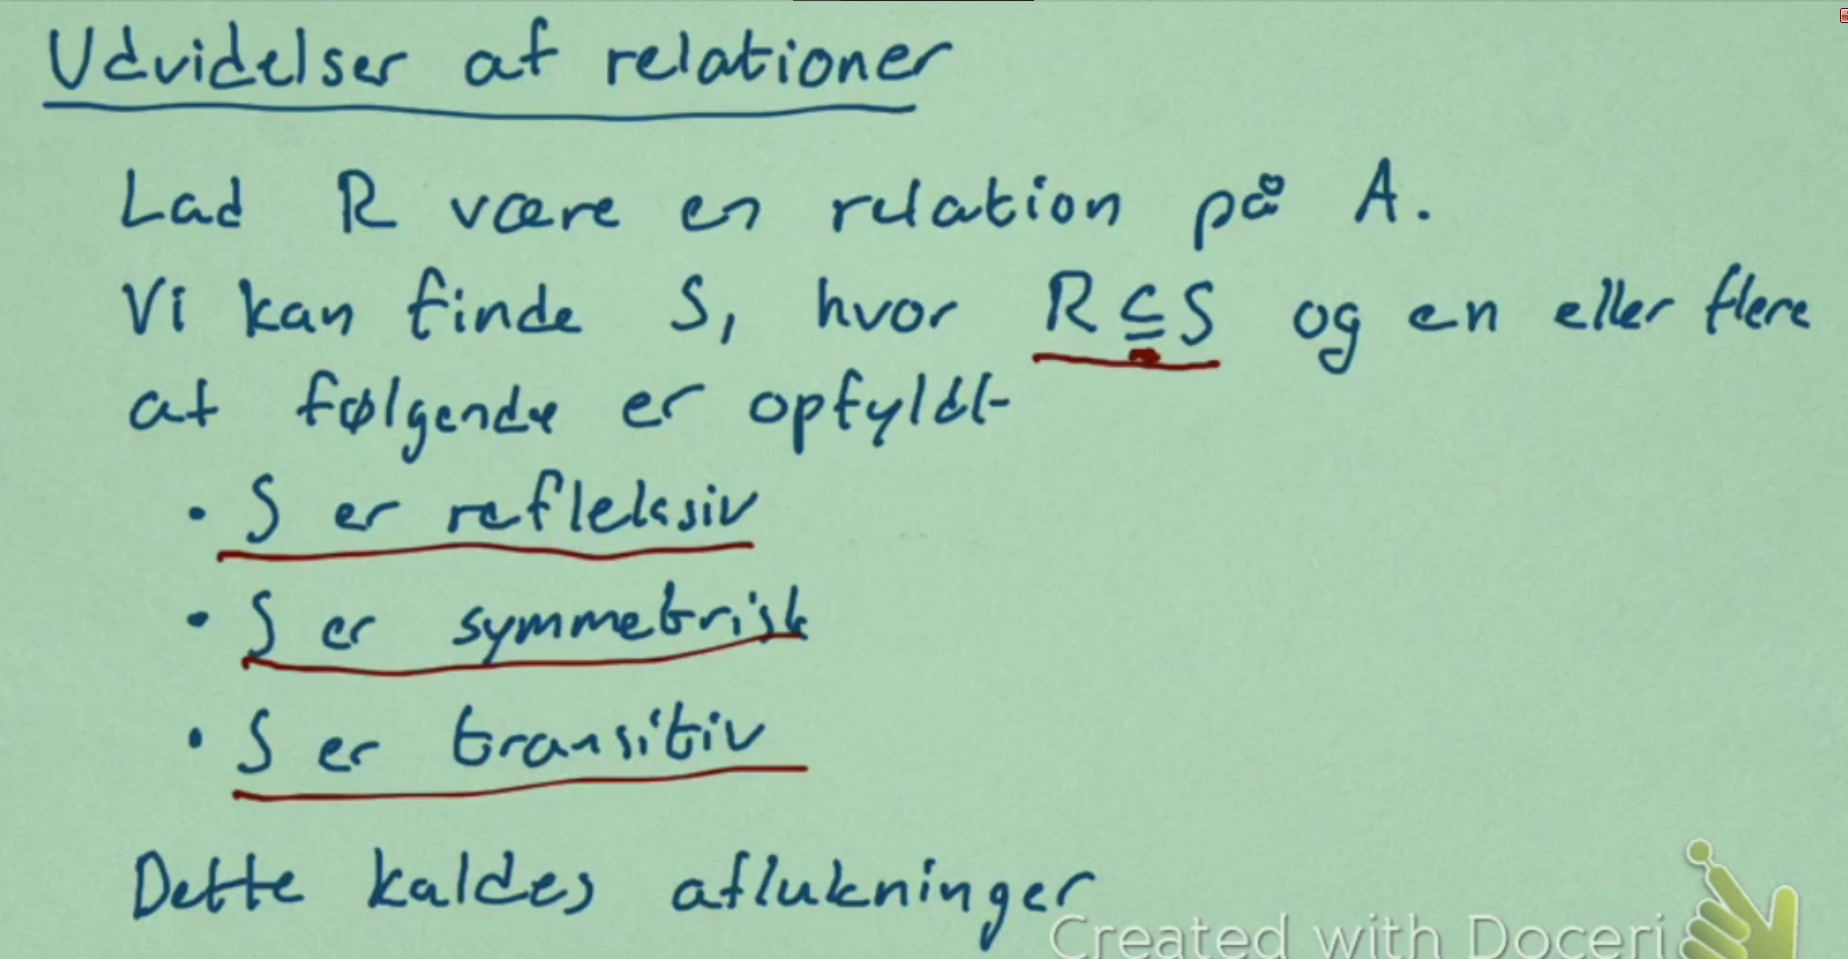 Udvidelser af relationer
Lad R være en relation på A.
Vi kan finde S, hvor R ⊆ S og en eller flere
af følgende er opfyldt
• S er refleksiv
• S er symmetrisk
• S er transitiv
Dette kaldes aflukninger
Created with Doceri